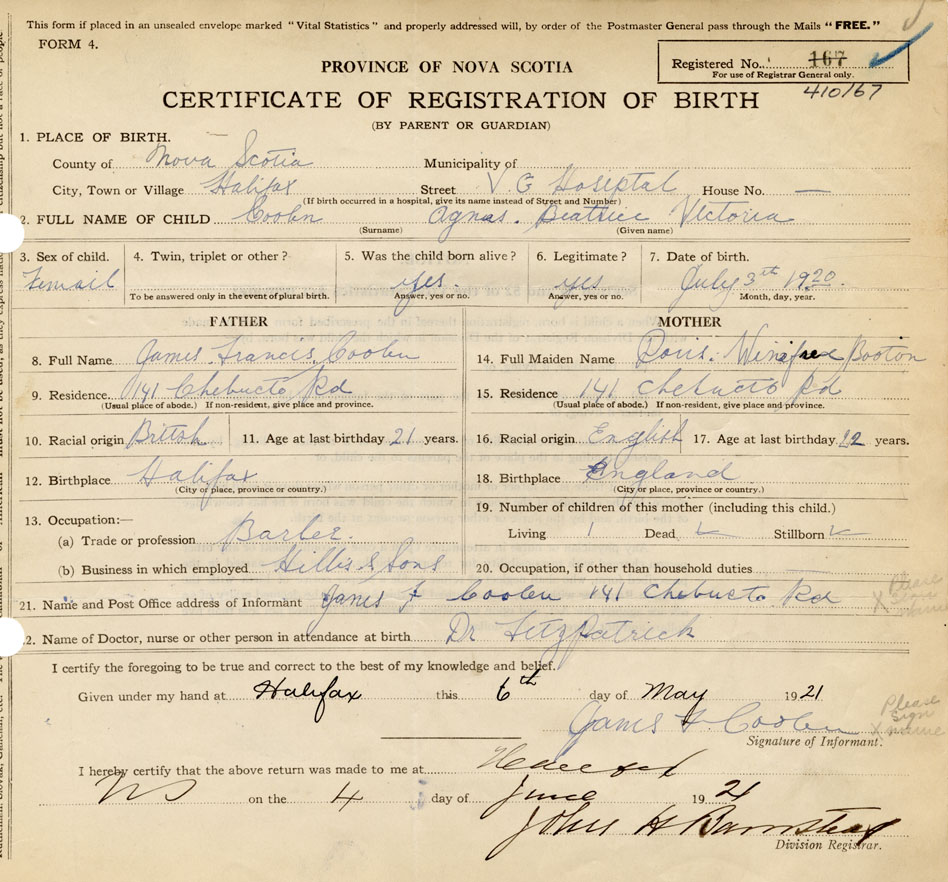 This form if placed in an unsealed envelope marked "Vital Statistics" and properly addressed will, by order of the Postmaster General pass through the Mails "FREE."
FORM 4.
Registered No. 167
For use of Registrar General only.
410167
PROVINCE OF NOVA SCOTIA
CERTIFICATE OF REGISTRATION OF BIRTH
(BY PARENT OR GUARDIAN)
1. PLACE OF BIRTH.
County of Nova Scotia Municipality of
City, Town or Village Halifax Street V G Hoseptal House No. —
(If birth occurred in a hospital, give its name instead of Street and Number)
2. FULL NAME OF CHILD Coolen Agnas. Beatrice Victoria
(Surname) (Given name)
3. Sex of child. 4. Twin, triplet or other? 5. Was the child born alive? 6. Legitimate? 7. Date of birth.
Femail yes. yes July 3th 1920
To be answered only in the event of plural birth. Answer, yes or no. Answer, yes or no. Month, day, year.
FATHER MOTHER
8. Full Name James Francis Coolen 14. Full Maiden Name Doris. Winifred Booton
9. Residence 141 Chebucto Rd 15. Residence 141 Chebucto Rd
(Usual place of abode.) If non-resident, give place and province. (Usual place of abode.) If non-resident, give place and province.
10. Racial origin Brittsh 11. Age at last birthday 21 years. 16. Racial origin English 17. Age at last birthday years.
12. Birthplace Halifax 18. Birthplace England
(City or place, province or country.) (City or place, province or country.)
13. Occupation:— 19. Number of children of this mother (including this child.)
(a) Trade or profession Barber. Living 1 Dead Stillborn
(b) Business in which employed Hillis & Sons 20. Occupation, if other than household duties —
21. Name and Post Office address of Informant James F Coolen 141 Chebucto Rd
Please
X name
2. Name of Doctor, nurse or other person in attendance at birth Dr Fitzpatrick
I certify the foregoing to be true and correct to the best of my knowledge and belief.
Given under my hand at Halifax this 6th day of May 1921
James F Coolen
Please
sign
X name
Signature of Informant.
I hereby certify that the above return was made to me at Halifax
NS on the 4 day of June 1921
John H Barnstead
Division Registrar.